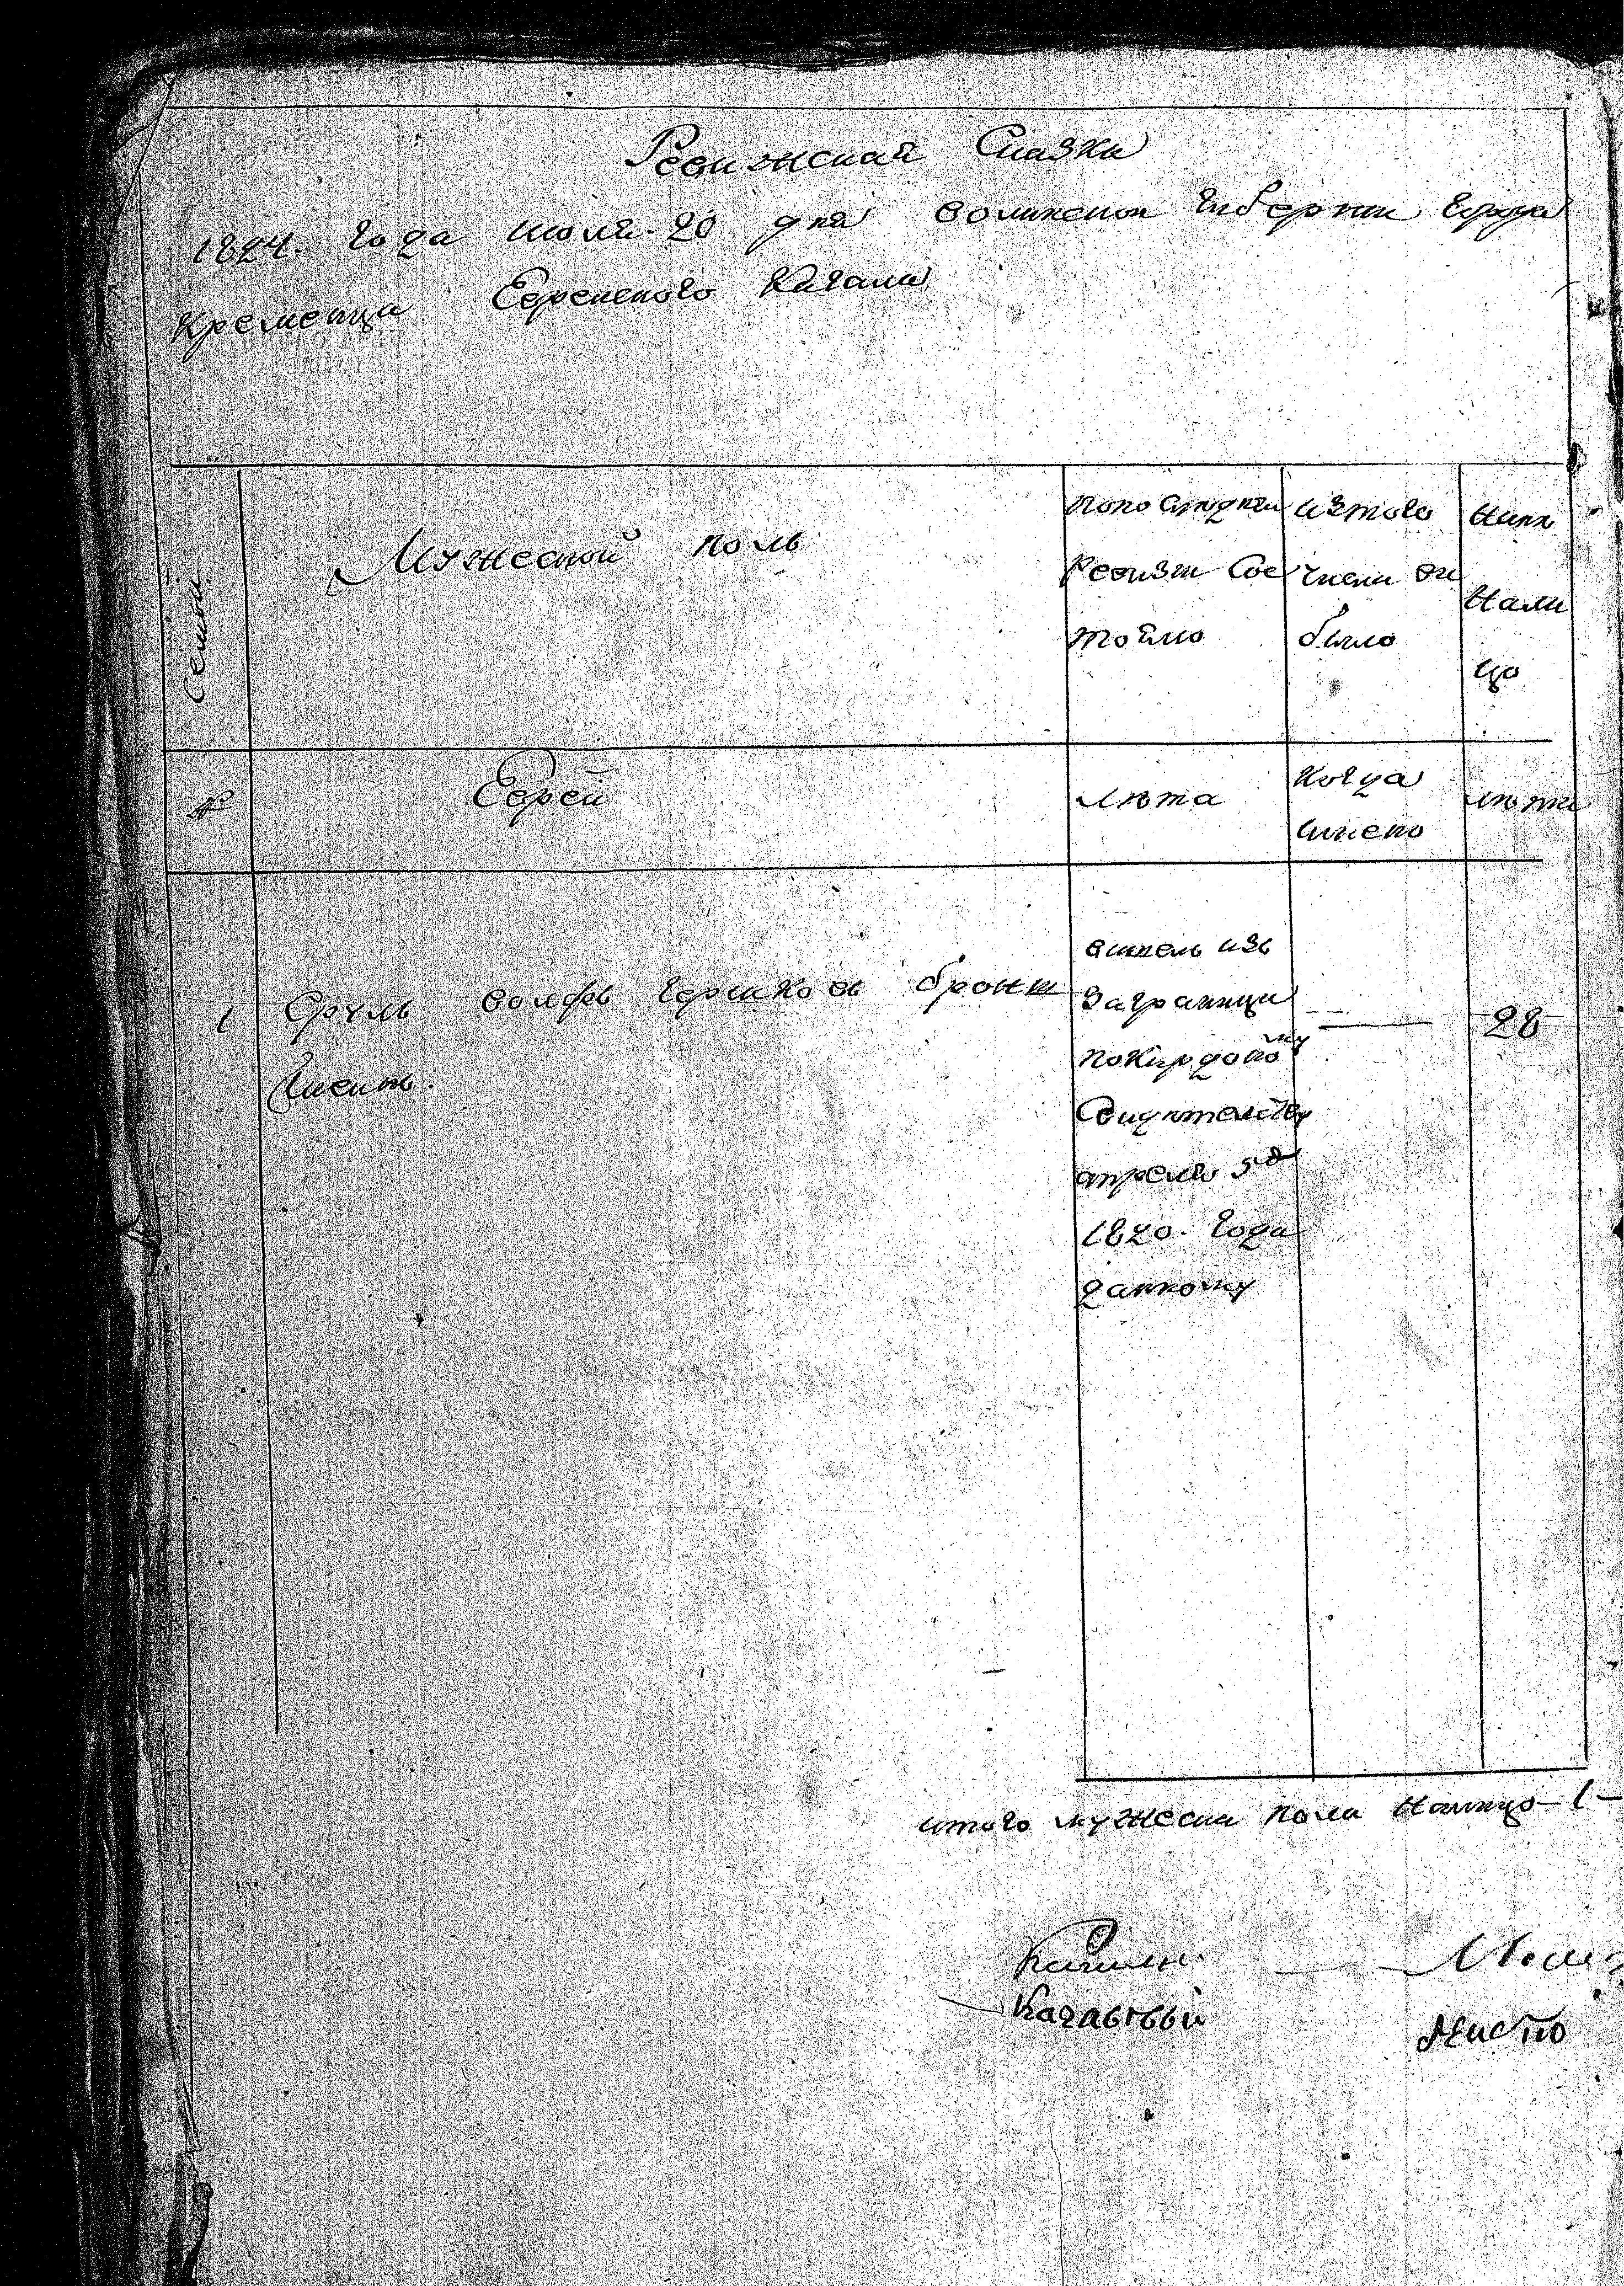 Ревижская Сказка
1824. Года июля 20 дня волинской Губернии Города
Кременца Еврейского Кагала
Семьи
Мужеской полъ
По последней
Ревизии Сос
тояло
изтого
числа вы
было
Ныне
Нали
цо
№
Еврей
лета
Когда
именно
лета
1
Сруль волфъ Гершковъ
28
вишель изъ
Заграници
Свидетелству
апреля 5го
1820. Года
данному
итого мужеска пола Налицо - 1 -
Кагальный
место